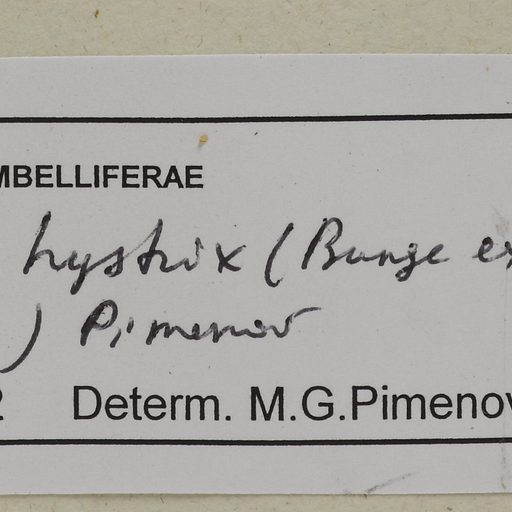 MBELLIFERAE
hystrix (Bunge ex
) Pimenov
2 Determ. M.G.Pimenov